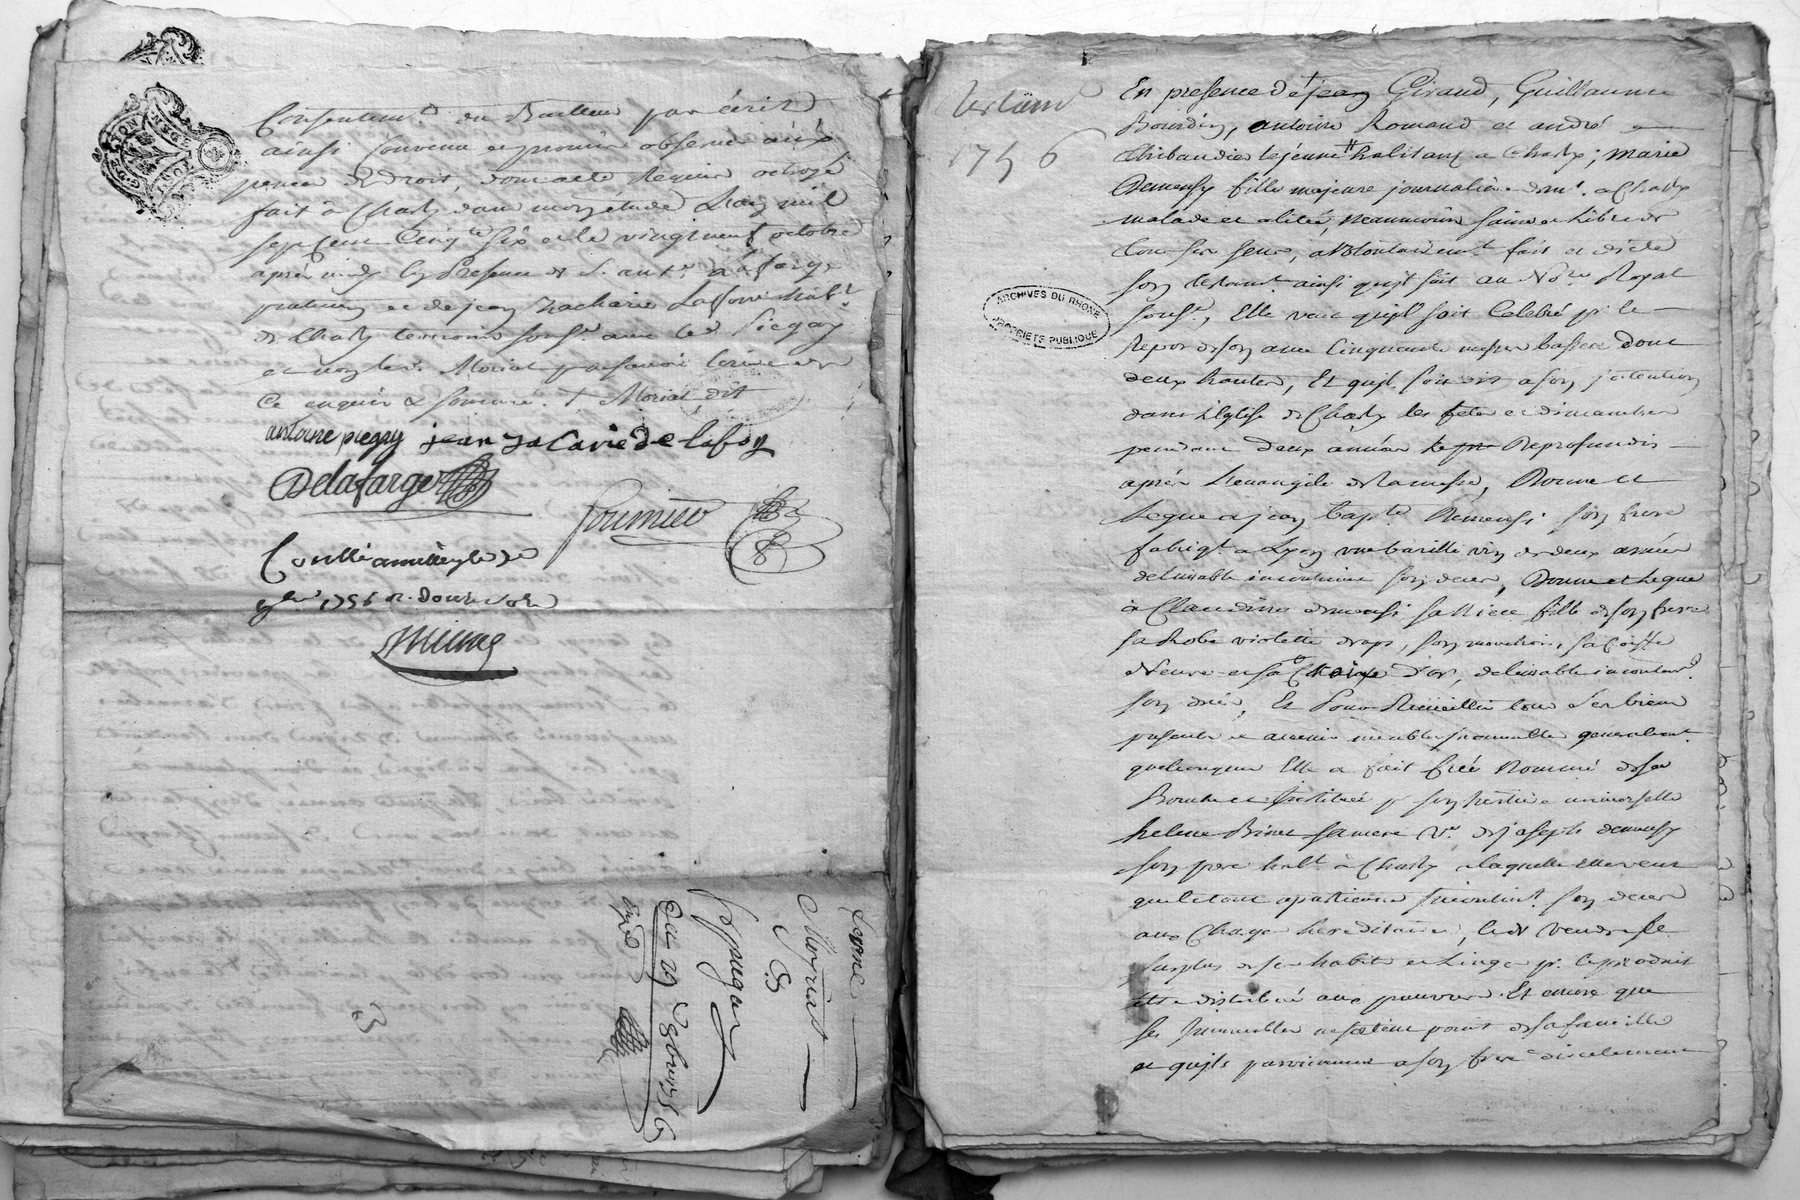 Consentem.t du Bailleur par écrit
ainsi Convenu et promis observer à
peine de droit, dont acte Requis octroyé
fait à Charly dans mon étude L'an mil
sept Cent Cinq.te Six et le vingt neuf octobre
après midy En Presence de S.r ant.e Delafarge
praticien et de jean Zacharie Lafont hab.t
de Charly temoins sous.és avec led. Piegay
et non led. Moriat pour ne savoir écrire de
Ce enquis & sommé. + Moriat dit
antoine piegay jean zacarie de lafon
Delafarge
fournier
Con.llé a millery le 3e
9bre 1756 R. douze sols
Lerme
Moyriat
à
S.r piegay
Du 29 8bre 1756
Expé
3
Testam.t
1756
ARCHIVES DU RHONE
PROPRIETE PUBLIQUE
En presence de + jean Giraud, Guillaume
Bourdin, antoine Romand et andré
Thibaudier le jeune habitans a Charly; Marie
Demeusy fille majeure journalière dem.t a Charly
malade et alitée, neanmoins saine et Libre de
tous ses sens, a volontairem.t fait et dicté
son testam.t ainsi qu'il suit au No.re Royal
sous.é, Elle veut qu'il soit Celebré p.r le
Repos de son ame Cinquante messes basses dont
deux hautes, Et qu'il soit dit a son jntention
dans L'Eglise de Charly les fetes et dimanches
pendant deux années le Deprofundis
après L'evangile de la messe, Donne et
Legue a jean bapt.e Demeusi son frere
fabriq.t a Lyon une barille vin de deux années
delivrable incontinent son deces, Donne et Legue
à Claudine demeusi sa Niece fille de son frere
sa Robe violette drap, son mouchoir, sa Coiffe
Neuve et sa Croix d'or, delivrable incontin.t
son deces, Et Pour Recueillir tous Ses biens
presents et avenir meubles immeubles generalem.t
quelconques Elle a fait Créé Nommé de sa
Bouche et Institué p.r son heritiere universelle
helene Brines sa mere V.e de joseph demeusy
son pere hab.t à Charly a laquelle elle veut
que le tout apartienne incontin.t son deces
aux Charges hereditaires, et de Vendre le
surplus de ses habits et Linges p.r le produit
etre distribué aux pauvres. Et encore que
ses Immeubles ne sortent point de sa famille
et qu'ils parviennent a son frere directement